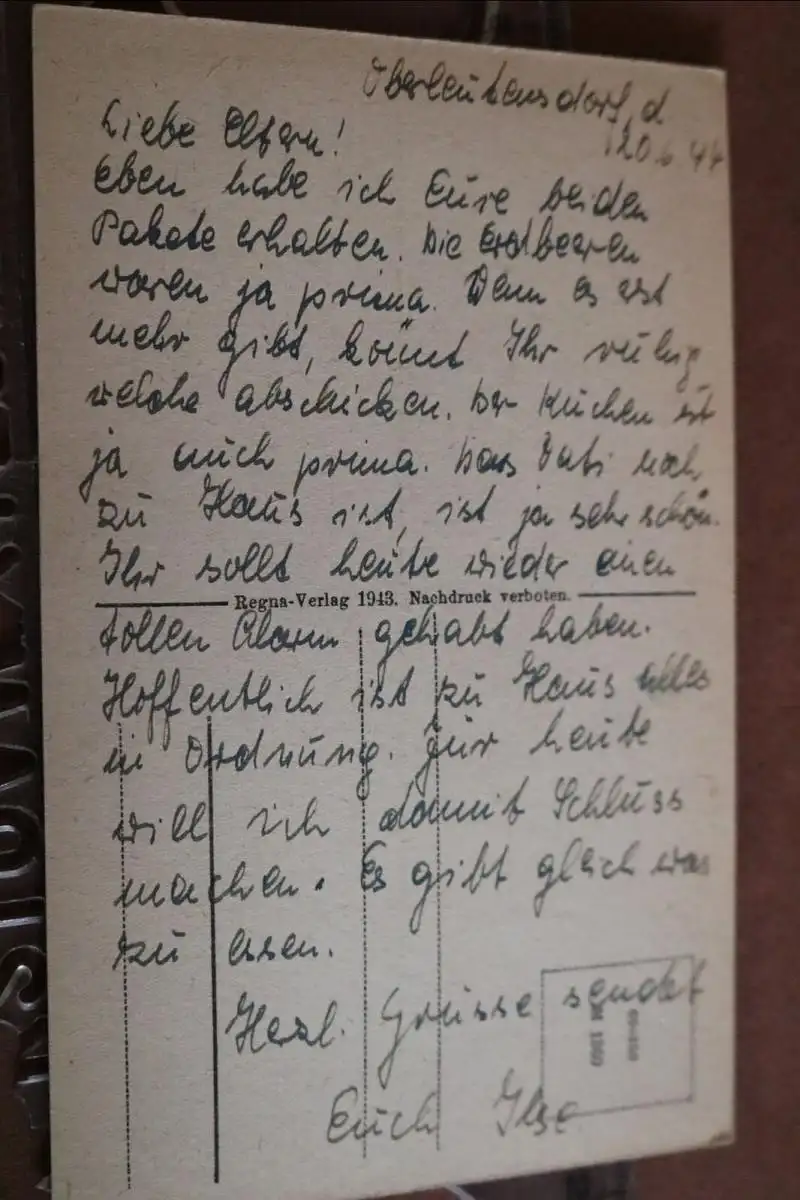 Oberleutensdorf, d
20.6.44
Liebe Eltern!
Eben habe ich Eure beiden
Pakete erhalten. Die Erdbeeren
waren ja prima. Wenn es erst
mehr gibt, könnt Ihr ruhig
welche abschicken. Der Kuchen ist
ja auch prima. Dass Vati noch
zu Haus ist, ist ja sehr schön.
Ihr sollt heute wieder einen
Regna-Verlag 1943. Nachdruck verboten.
tollen Alarm gehabt haben.
Hoffentlich ist zu Haus alles
in Ordnung. Für heute
will ich damit Schluss
machen. Es gibt gleich was
zu essen.
Herzl. Grüsse sendet
Euch Ilse